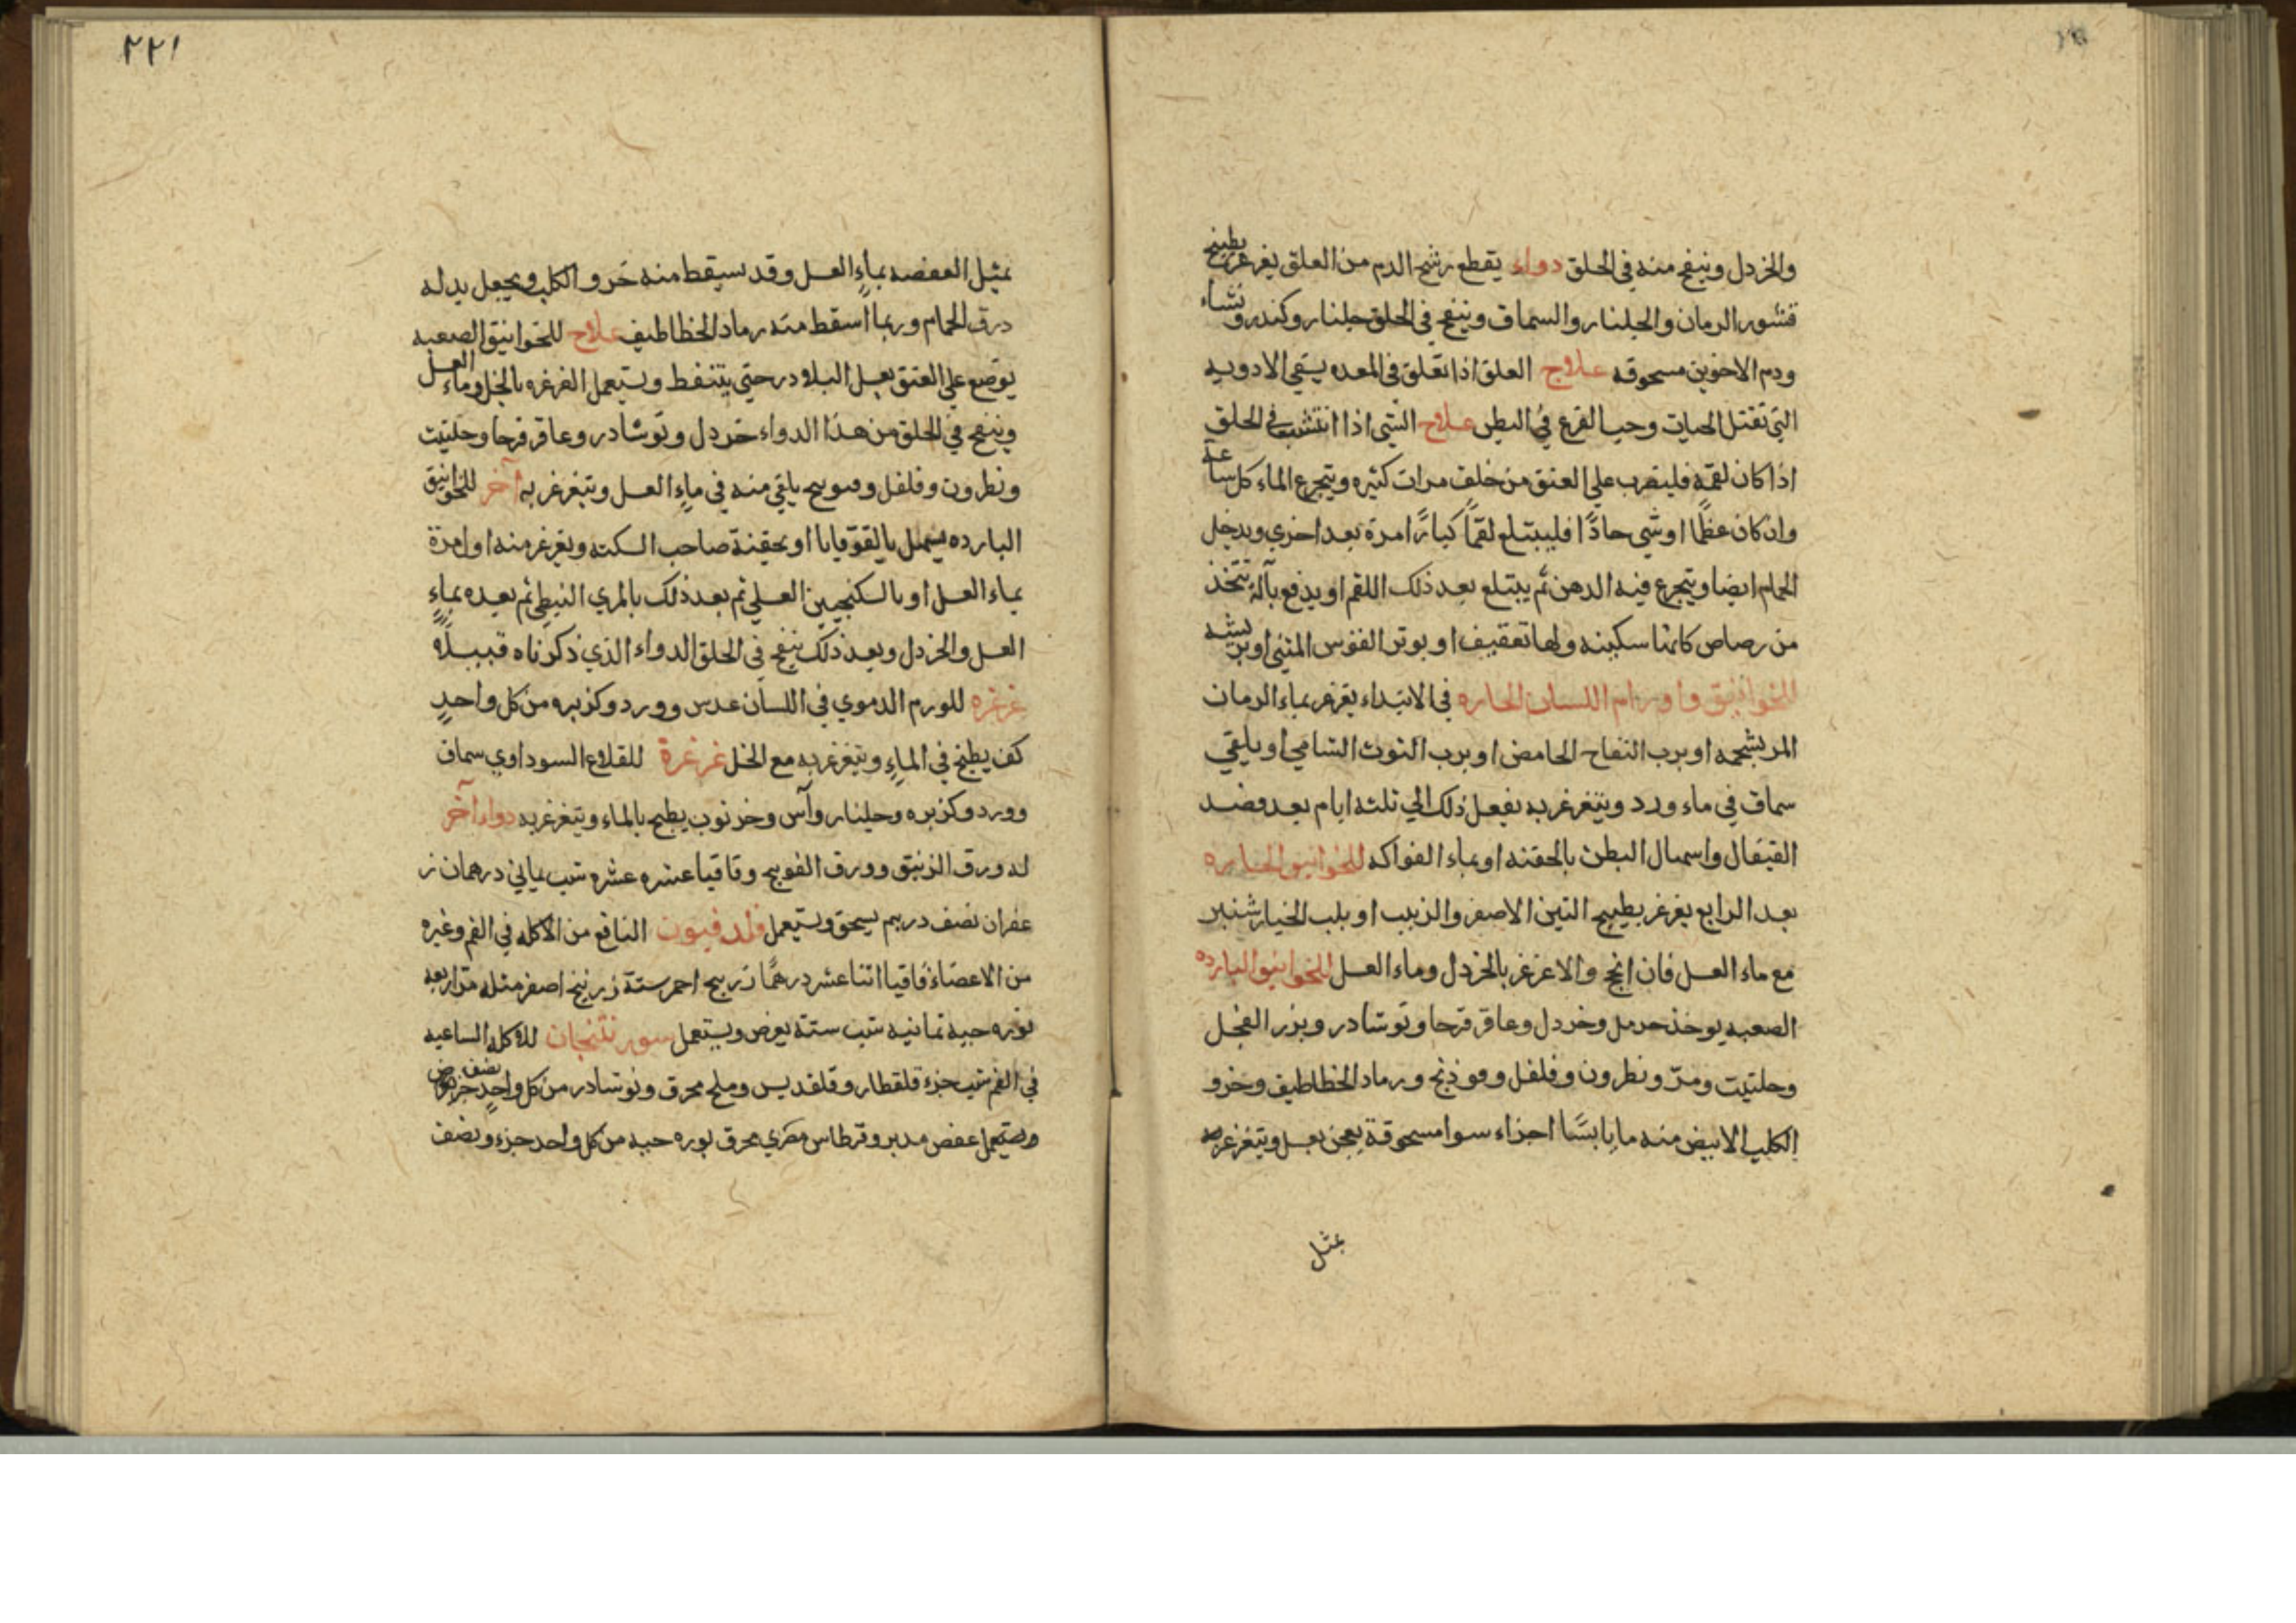 والخردل وينفخ منه في الحلق دواء يقطع رشح الدم من العلق يغرغر بطبيخ
قشور الرمان والجلنار والسماق وينفخ في الحلق جلنار وكندر ونشاء
ودم الاخوين مسحوقه علاج العلق اذا تعلق في المعده يسقي الادويه
التي تقتل الحيات وحب القرع في البطن علاج الشي اذا انتشب في الحلق
اذا كان لقمة فليضرب علي العنق من خلف مرات كثيره ويتجرع الماء كل ساعة
وان كان عظما او شي حادًّا فليبتلع لقمًا كبارًا مرة بعد اخري ويدخل
الحمام ايضا ويتجرع فيه الدهن ثم يبتلع بعد ذلك اللقم او يدفع بآلة تتخذ
من رصاص كانها سكينه ولها تعقيف او بوتر القوس المثني او بريشه
للخوانيق واورام اللسان الحاره في الابتداء يغرغر بماء الرمان
المر بشحمه او برب التفاح الحامض او برب التوث الشامي او يلقي
سماق في ماء ورد ويتغرغر به يفعل ذلك الي ثلثه ايام بعد فصد
القيفال واسهال البطن بالحقنه او بماء الفواكه للخوانيق الحاره
بعد الرابع يغرغر بطبيخ التين الاصفر والزبيب او بلب الخيار شنبر
مع ماء العسل فان انجح والا غرغر بالخردل وماء العسل للخوانيق البارده
الصعبه يوخذ حرمل وخردل وعاقر قرحا ونوشادر وبزر الفجل
وحلتيت ومرّ ونطرون وفلفل وفوذنج ورماد الخطاطيف وخرو
الكلب الابيض منه ما يابسًا اجزاء سوا مسحوقة يعجن بعسل ويتغرغر منه
بمثل
٢٢١
بمثل العفصه بماءِ العسل وقد سيقط منه خرو الكلب ويجعل بدله
درق الحمام وربما اسقط منه رماد الخطاطيف علاج للخوانيق الصعبه
يوضع علي العنق بعسل البلادر حتي يتنفط ويستعمل الغرغره بالخل وماء العسل
وينفخ في الحلق من هذا الدواء خردل ونوشادر وعاقر قرحا وحلتيت
ونطرون وفلفل وفوينج يلقي منه في ماءِ العسل ويتغرغر به آخر للخوانيق
البارده يسهل بالقوقايا او بحقنة صاحب السكته ويغرغر منه اول مرة
بماء العسل او بالسكنجبين العسلي ثم بعد ذلك بالمري النبطي ثم بعده بماءِ
العسل والخردل وبعد ذلك ينفخ في الحلق الدواء الذي ذكرناه قبيل
غرغره للورم الدموي في اللسان عدس وورد وكزبره من كل واحدٍ
كف يطبخ في الماءِ ويتغرغر به مع الخل غرغرة للقلاع السوداوي سماق
وورد وكزبره وجلنار وآس وخرنوب يطبخ بالماء ويتغرغر به دواء آخر
له ورق الزنبق وورق الفوينج وقاقيا عشره عشره شب يماني درهمان ز
عفران نصف درهم يسحق ويستعمل فلدفيون النافع من الاكله في الفم وغيره
من الاعضاء قاقيا اثنا عشر درهمًا زرنيخ احمر ستة زرنيخ اصفر مثله مر اربعه
نوره حيه ثمانيه شب ستة يقرص ويستعمل سورنتنجان للاكله الساعيه
في الفم شب جزء قلقطار وقلقديس وملح محرق ونوشادر من كل واحدٍ نصف جز
ويستعمل عفص مدبر وقرطاس مصري محرق نوره حيه من كل واحد جزء ونصف